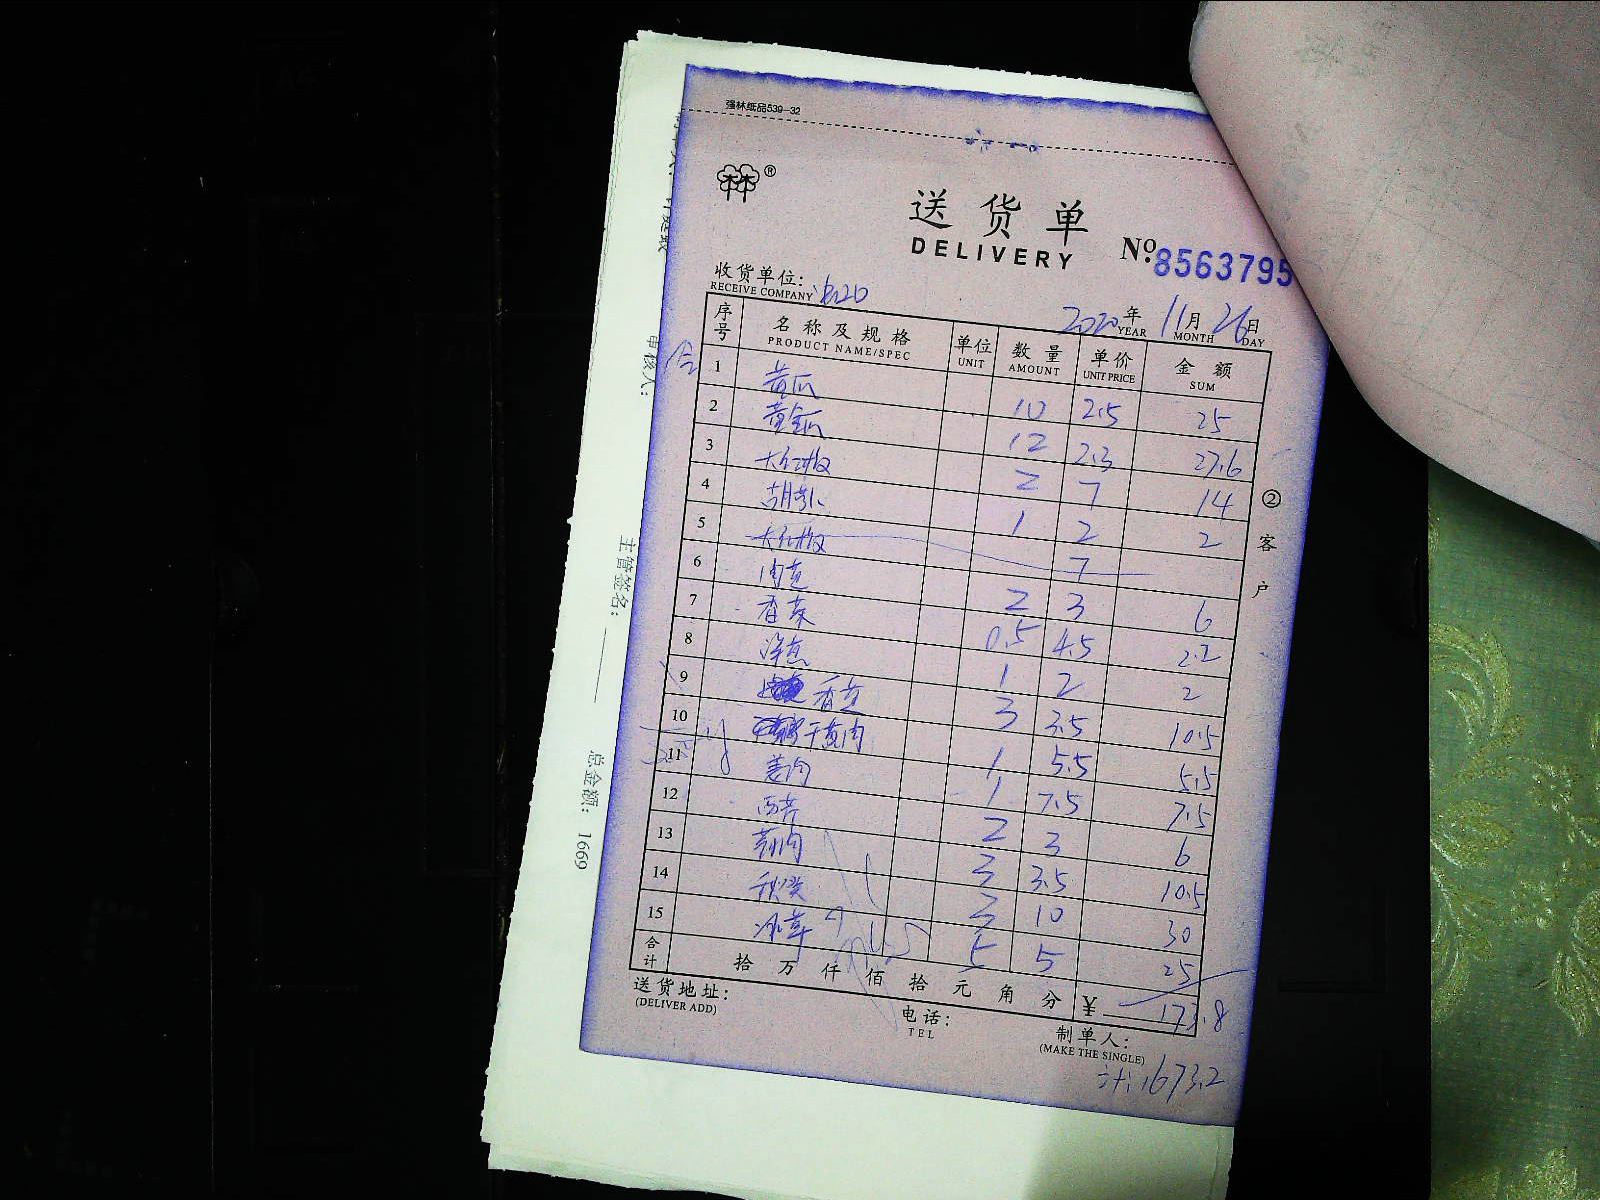 强林纸品539-32
®
送货单
DELIVERY
No. 8563795
收货单位:
RECEIVE COMPANY
2020年 11月 26日
YEAR MONTH DAY
序号 名称及规格 单位 数量 单价 金额
PRODUCT NAME/SPEC UNIT AMOUNT UNIT PRICE SUM
1 黄瓜 10 2.5 25
2 黄金瓜 12 2.3 27.6
3 大红椒 2 7 14
4 胡萝卜 1 2 2
5 大红椒 7
6 肉葱 2 3 6
7 香菜 0.5 4.5 2.2
8 洋葱 1 2 2
9 香芹 3 3.5 10.5
10 干葱肉 1 5.5 5.5
11 姜肉 1 7.5 7.5
12 西芹 2 3 6
13 3 3.5 10.5
14 秋葵 3 10 30
15 冰草 5 5 25
合计 拾 万 仟 佰 拾 元 角 分 ¥ 173.8
送货地址:
(DELIVER ADD)
电话:
TEL
制单人:
(MAKE THE SINGLE)
计:1673.2
②客户
审核人:
主管签名:
总金额: 1669